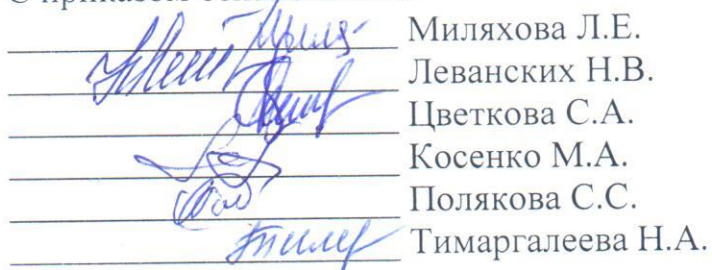 С приказом
Миляхова Л.Е.
Леванских Н.В.
Цветкова С.А.
Косенко М.А.
Полякова С.С.
Тимаргалеева Н.А.